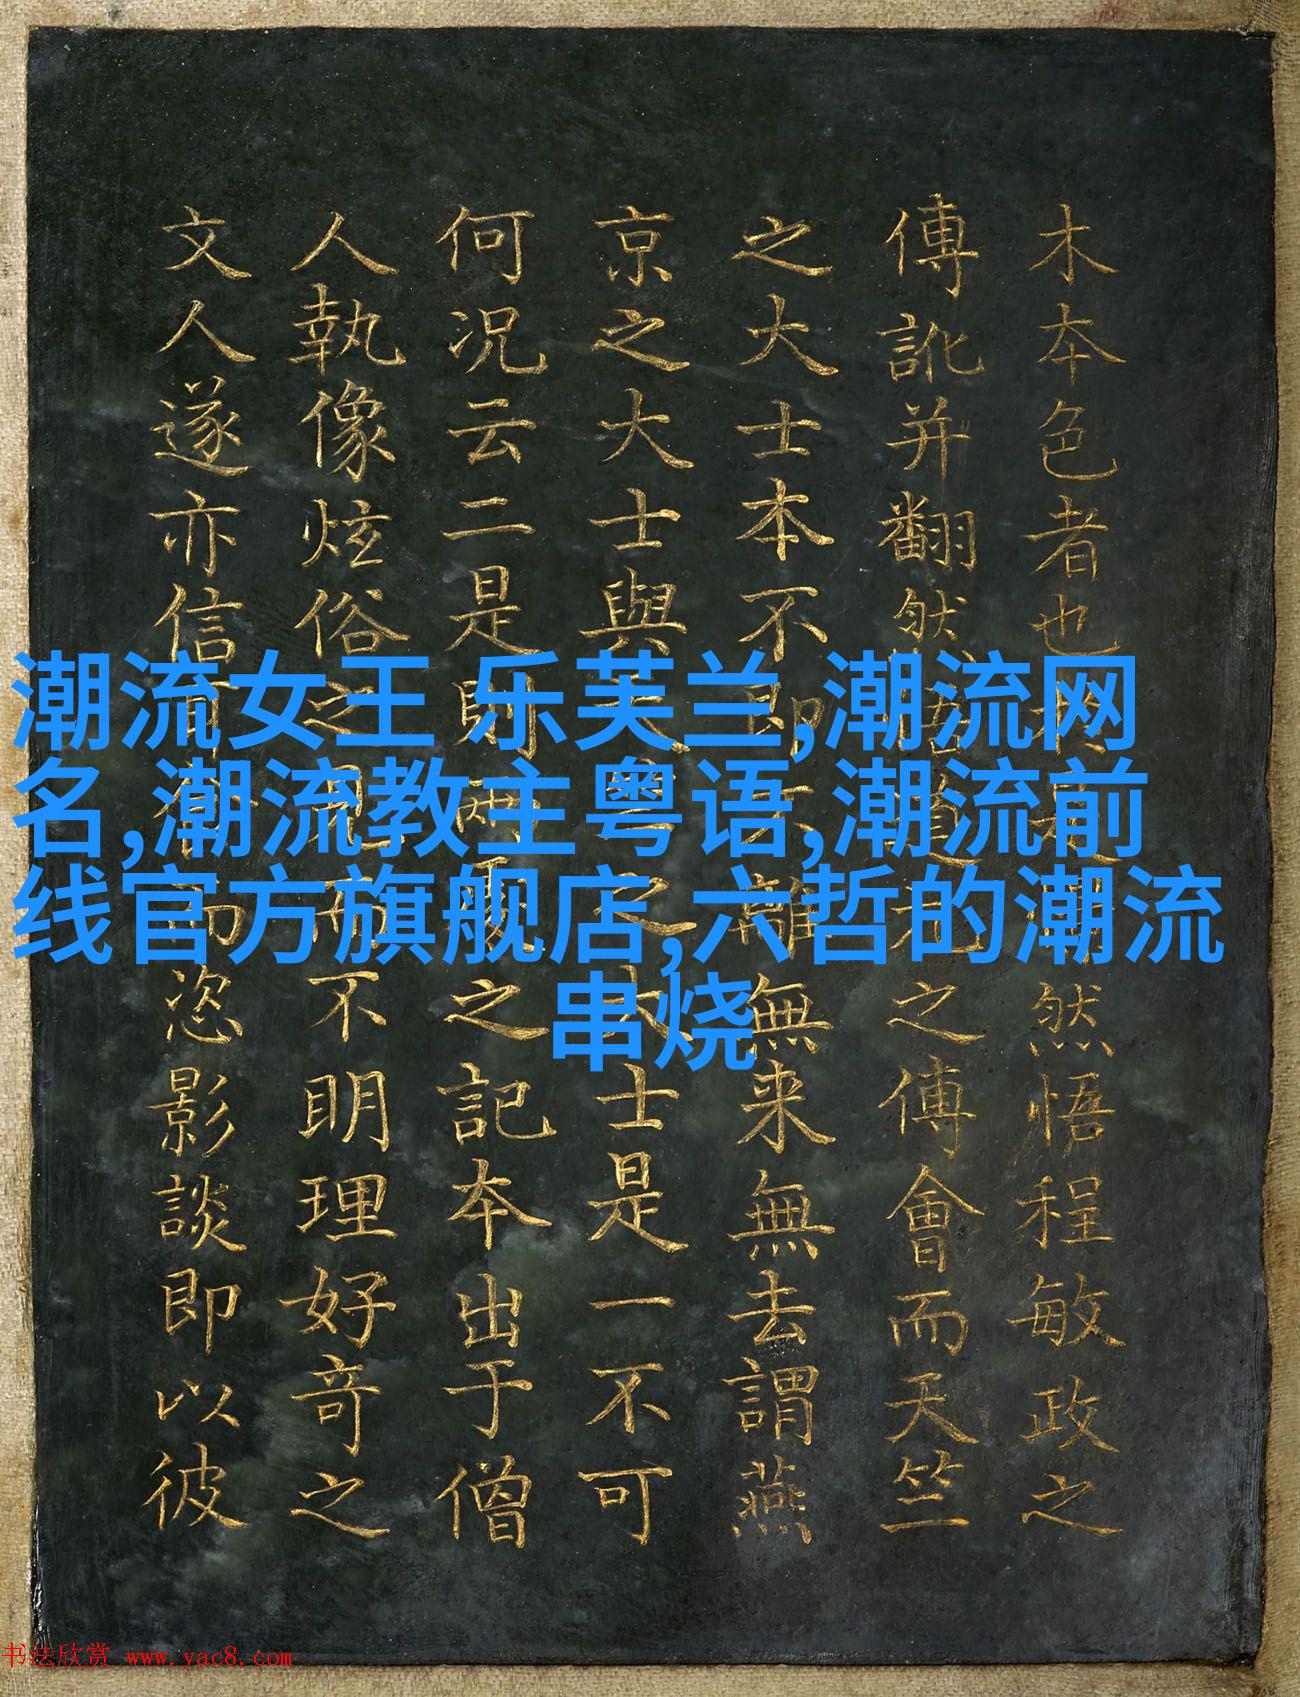 木本色者也然悟程敏政之
傳訛并翻然之傅會而天竺
之大士本不即離無来無去謂燕
京之大士與之士是一不可
何况云二是則之記本出于僧
人執像炫俗之而不明理好奇之
文人遂亦信恣影談即以彼
潮流女王 乐芙兰,潮流网
名,潮流教主粤语,潮流前
线官方旗舰店,六哲的潮流
串烧
书法欣赏 www.yac8.com